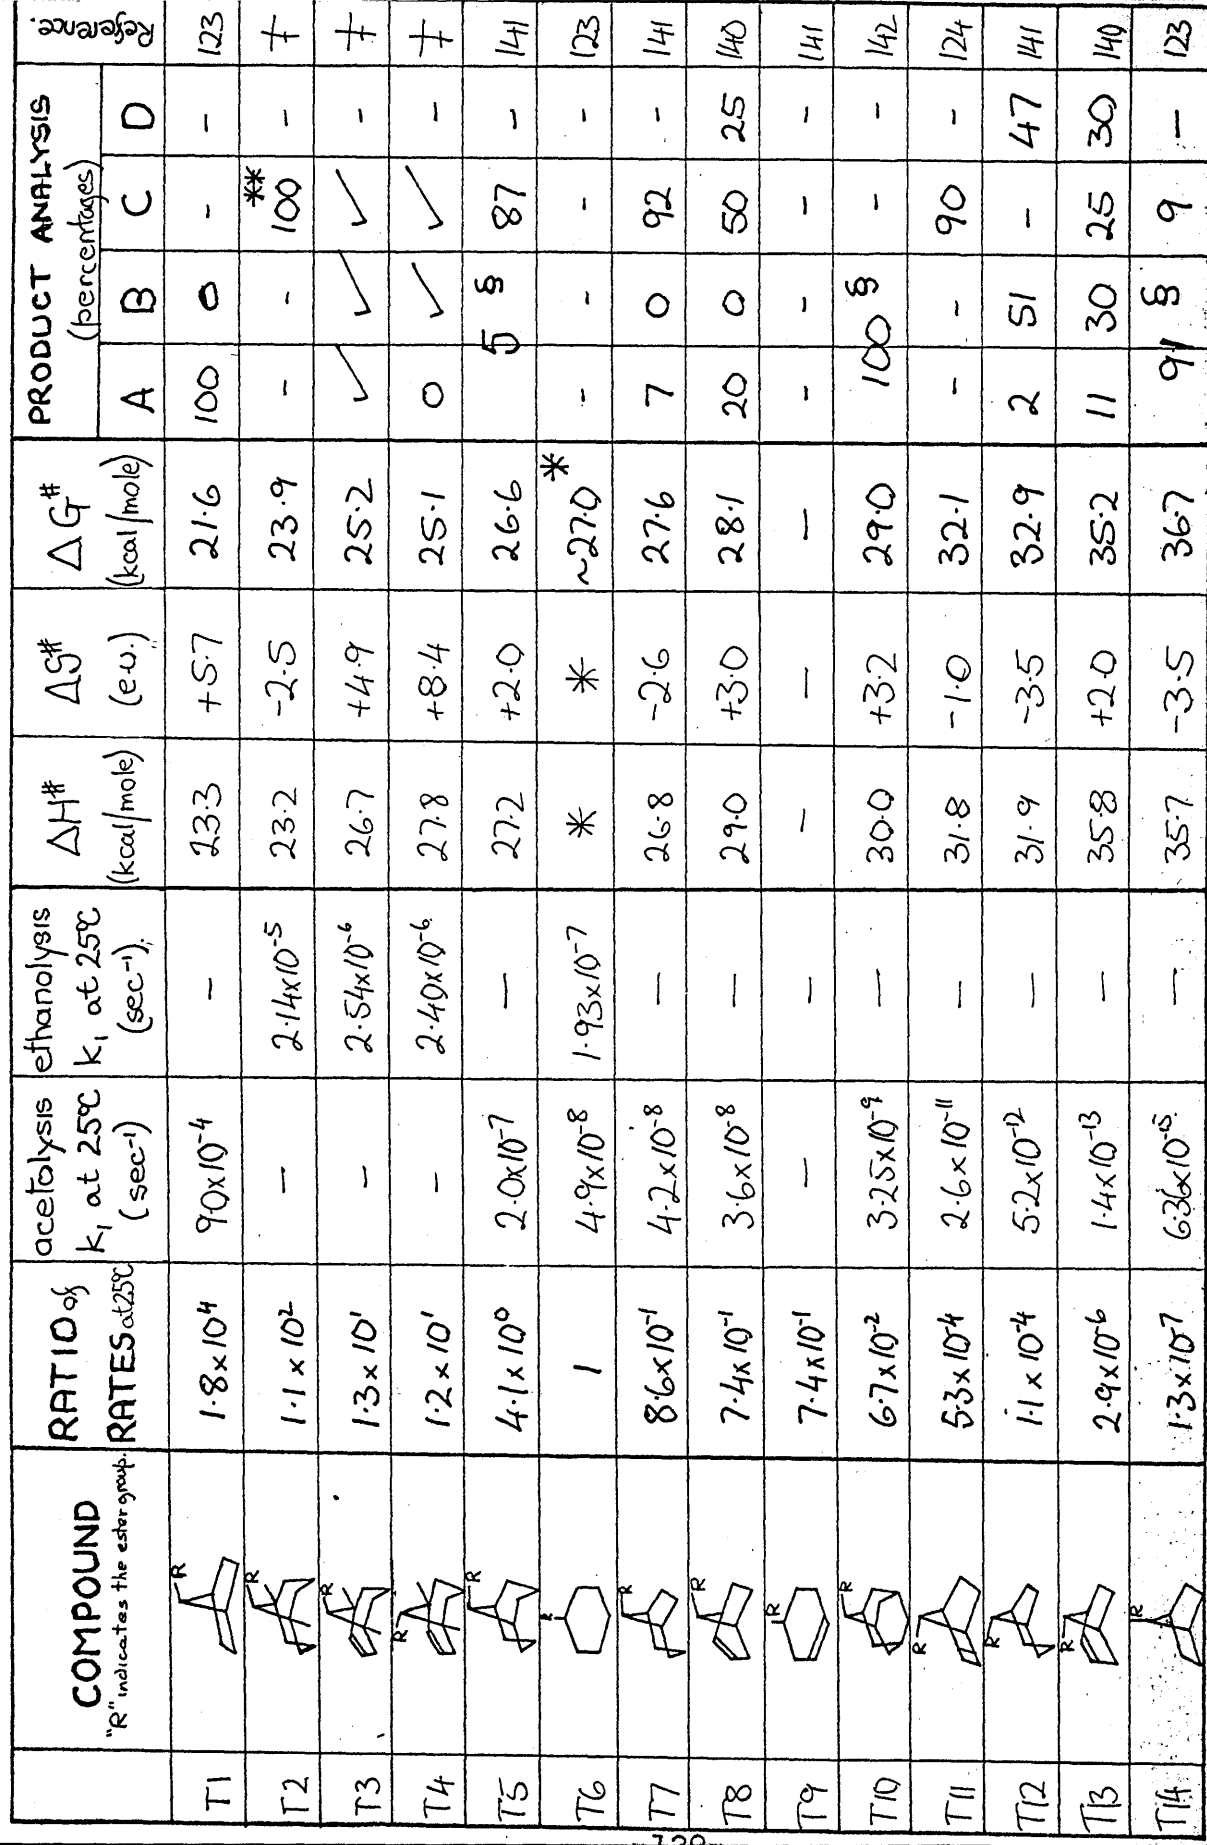 COMPOUND "R" indicates the ester group. | RATIO of RATES at 25°C | acetolysis k₁ at 25°C (sec⁻¹) | ethanolysis k₁ at 25°C (sec⁻¹). | ΔH# (kcal/mole) | ΔS# (e.u.) | ΔG# (kcal/mole) | PRODUCT ANALYSIS (percentages) A B C D | Reference.
T1 R 1.8x10⁴ 90x10⁻⁴ - 23.3 +5.7 21.6 100 0 - - 123
T2 R 1.1x10² - 2.14x10⁻⁵ 23.2 -2.5 23.9 - - 100** - ‡
T3 R 1.3x10¹ - 2.54x10⁻⁶ 26.7 +4.9 25.2 ✓ ✓ ✓ - ‡
T4 R 1.2x10¹ - 2.40x10⁻⁶ 27.8 +8.4 25.1 0 ✓ ✓ - ‡
T5 R 4.1x10⁰ 2.0x10⁻⁷ - 27.2 +2.0 26.6 5 § 87 - 141
T6 R 1 4.9x10⁻⁸ 1.93x10⁻⁷ * * ~27.0* - - - - 123
T7 R 8.6x10⁻¹ 4.2x10⁻⁸ - 26.8 -2.6 27.6 7 0 92 - 141
T8 R 7.4x10⁻¹ 3.6x10⁻⁸ - 29.0 +3.0 28.1 20 0 50 25 140
T9 R 7.4x10⁻¹ - - - - - - - - - 141
T10 R 6.7x10⁻² 3.25x10⁻⁹ - 30.0 +3.2 29.0 100 § - - 142
T11 R 5.3x10⁻⁴ 2.6x10⁻¹¹ - 31.8 -1.0 32.1 - - 90 - 124
T12 R 1.1x10⁻⁴ 5.2x10⁻¹² - 31.9 -3.5 32.9 2 51 - 47 141
T13 R 2.9x10⁻⁶ 1.4x10⁻¹³ - 35.8 +2.0 35.2 11 30 25 30 140
T14 R 1.3x10⁻⁷ 6.36x10⁻¹⁵ - 35.7 -3.5 36.7 91 § 9 - 123